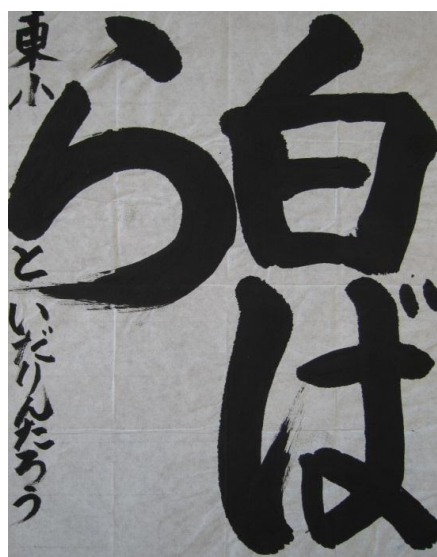 白ば
ら
東小 といだりんたろう